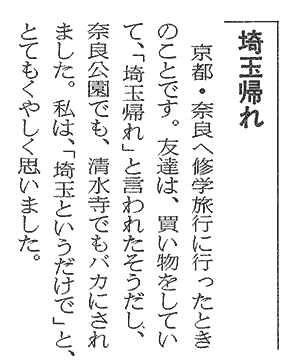 埼玉帰れ
京都・奈良へ修学旅行に行ったとき
のことです。友達は、買い物をしてい
て、「埼玉帰れ」と言われたそうだし、
奈良公園でも、清水寺でもバカにされ
ました。私は、「埼玉というだけで」と、
とてもくやしく思いました。